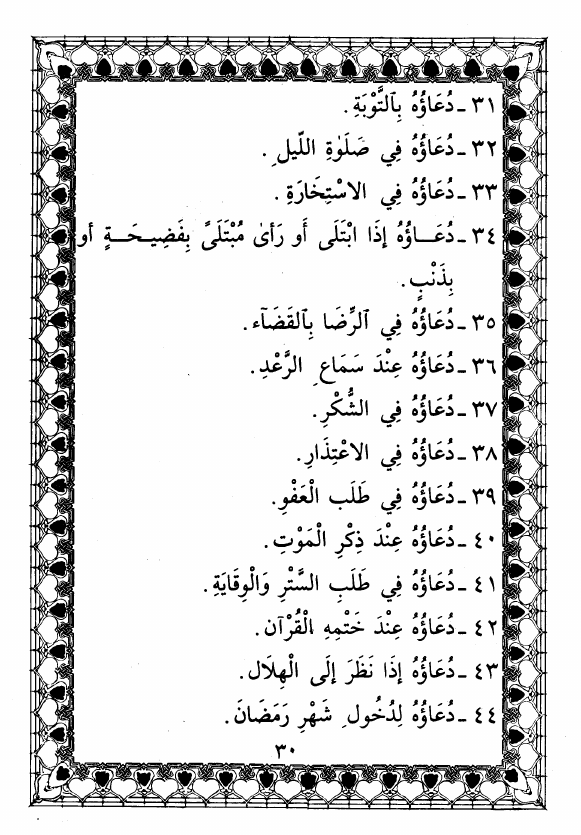 ٣١ ـ دُعَاؤُهُ بِٱلتَّوْبَةِ .
٣٢ ـ دُعَاؤُهُ فِي صَلَوٰةِ اللّيلِ .
٣٣ ـ دُعَاؤُهُ فِي الاسْتِخَارَةِ .
٣٤ ـ دُعَـاؤُهُ إذَا ابْتَلَى أَو رَأىٰ مُبْتَلَىً بِفَضِيـحَـةٍ أو
بِذَنْبٍ .
٣٥ ـ دُعَاؤُهُ فِي ٱلرِّضَا بِٱلقَضَآء .
٣٦ ـ دُعَاؤُهُ عِنْدَ سَمَاعِ الرَّعْدِ .
٣٧ ـ دُعَاؤُهُ فِي الشُّكْرِ .
٣٨ ـ دُعَاؤُهُ فِي الاعْتِذَارِ .
٣٩ ـ دُعَاؤُهُ فِي طَلَب الْعَفْوِ .
٤٠ ـ دُعَاؤُهُ عِنْدَ ذِكْرِ الْمَوْتِ .
٤١ ـ دُعَاؤُهُ فِي طَلَبِ السَّتْرِ وَالْوِقَايَةِ .
٤٢ ـ دُعَاؤُهُ عِنْدَ خَتْمِهِ الْقُرْآن .
٤٣ ـ دُعَاؤُهُ إذَا نَظَرَ إلَى الْهِلَال .
٤٤ ـ دُعَاؤُهُ لِدُخُولِ شَهْرِ رَمَضَانَ .
٣٠